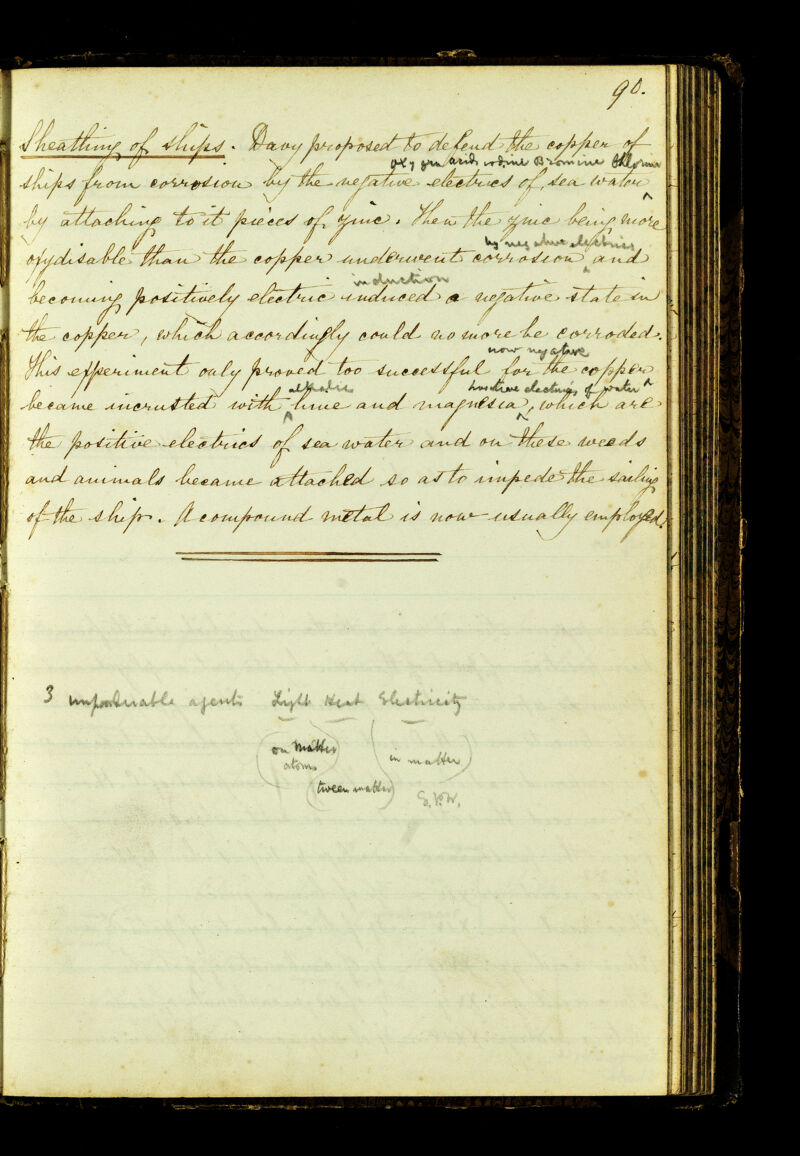 90.
Sheathing of ships. Davy proposed to defend the copper of
oxygen acids iodine Bromine Chlorine
ships from corrosion by the negative electrics of sea water
by attaching to it pieces of zinc. Then the zinc being more
by negative electrics
oxydisable than the copper underwent corrosion and
induction
becoming positively electric induced a negative state in
the copper, which accordingly could no more be corroded.
now negative
This experiment only proved too successful for the copper
alkalis electrics of water
became incrusted with lime and magnesia, which are
the positive electrics of sea water and on these weeds
and animals became attached so as to impede the sailing
of the ship. A compound metal is now usually employed.
3 imponderable agents Light Heat Electricity
on matter in matter
atoms
tween matter